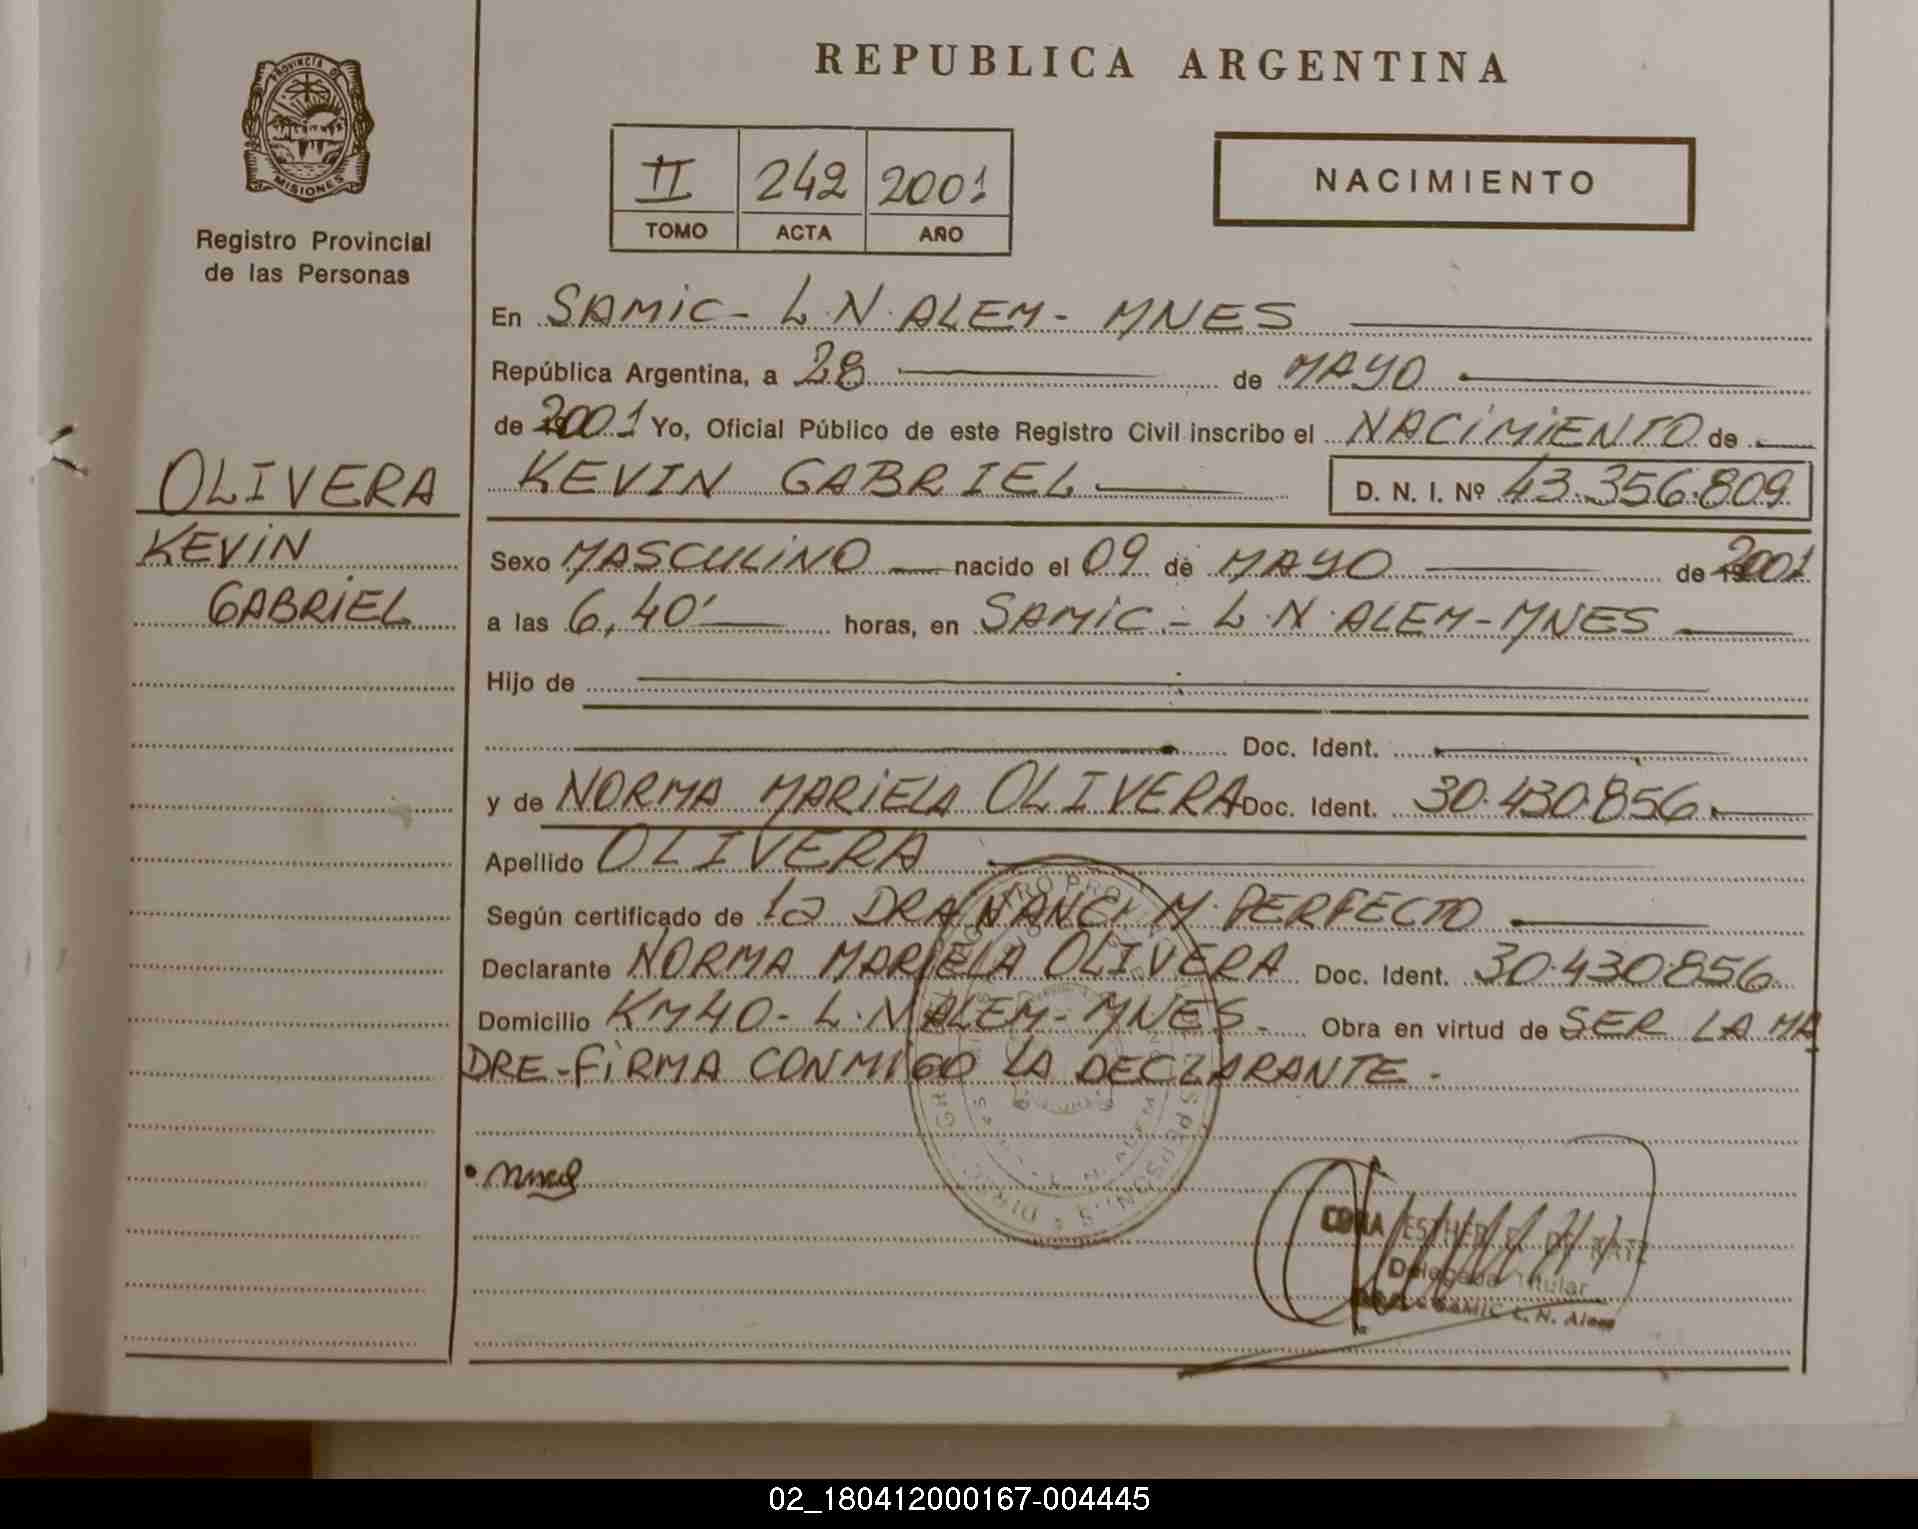 REPUBLICA ARGENTINA
PROVINCIA DE
MISIONES
Registro Provincial
de las Personas
II 242 2001
TOMO ACTA AÑO
NACIMIENTO
En SAMIC - L.N. ALEM - MNES
República Argentina, a 28 de MAYO
de 2001 Yo, Oficial Público de este Registro Civil inscribo el NACIMIENTO de
KEVIN GABRIEL D. N. I. Nº 43.356.809
OLIVERA
KEVIN
GABRIEL
Sexo MASCULINO nacido el 09 de MAYO de 2001
a las 6,40' horas, en SAMIC - L.N. ALEM - MNES
Hijo de
Doc. Ident.
y de NORMA MARIELA OLIVERA Doc. Ident. 30.430.856.
Apellido OLIVERA
Según certificado de la DRA NANCI M. PERFECTO
Declarante NORMA MARIELA OLIVERA Doc. Ident. 30.430.856
Domicilio KM 40 - L.N ALEM - MNES. Obra en virtud de SER LA MA
DRE - FIRMA CONMIGO LA DECLARANTE.
ESTHER
Delegada Titular
SAMIC L. N. Alem
02_180412000167-004445